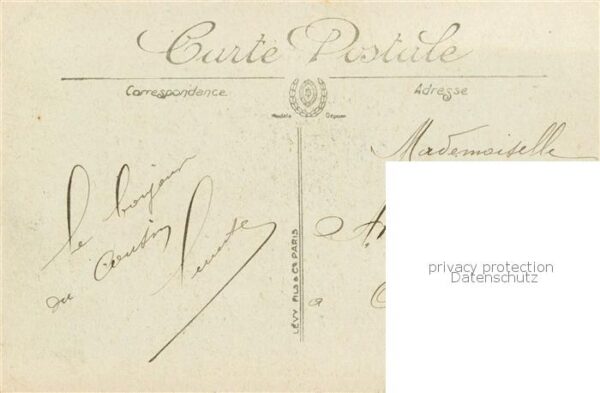 Carte Postale
Correspondance
Adresse
Modèle Déposé
Mademoiselle
le bonjour
du Cousin
LÉVY FILS & Cie PARIS
a
privacy protection
Datenschutz